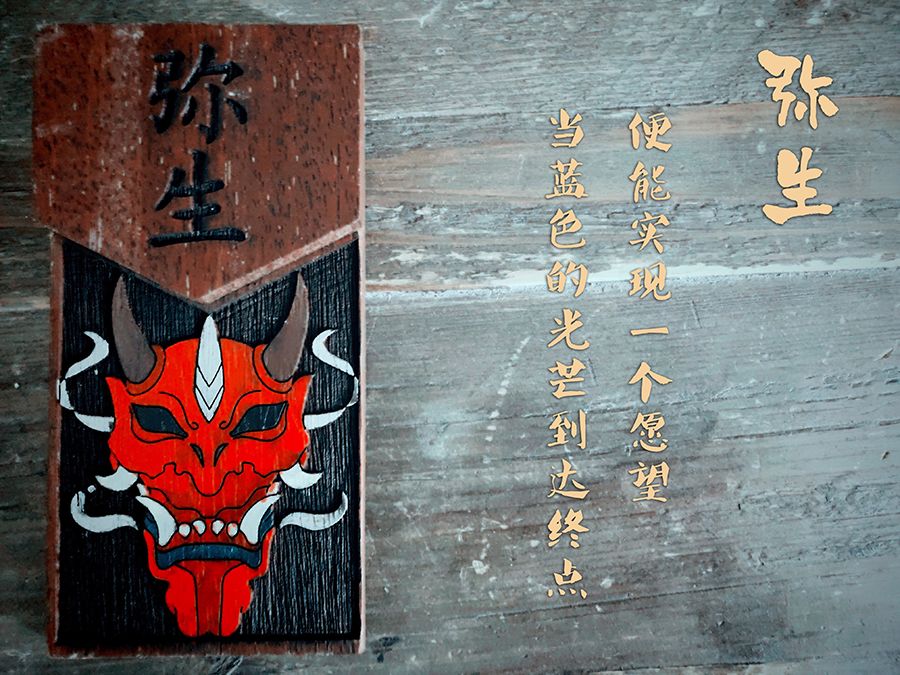 弥生
弥生
当蓝色的光芒到达终点
便能实现一个愿望